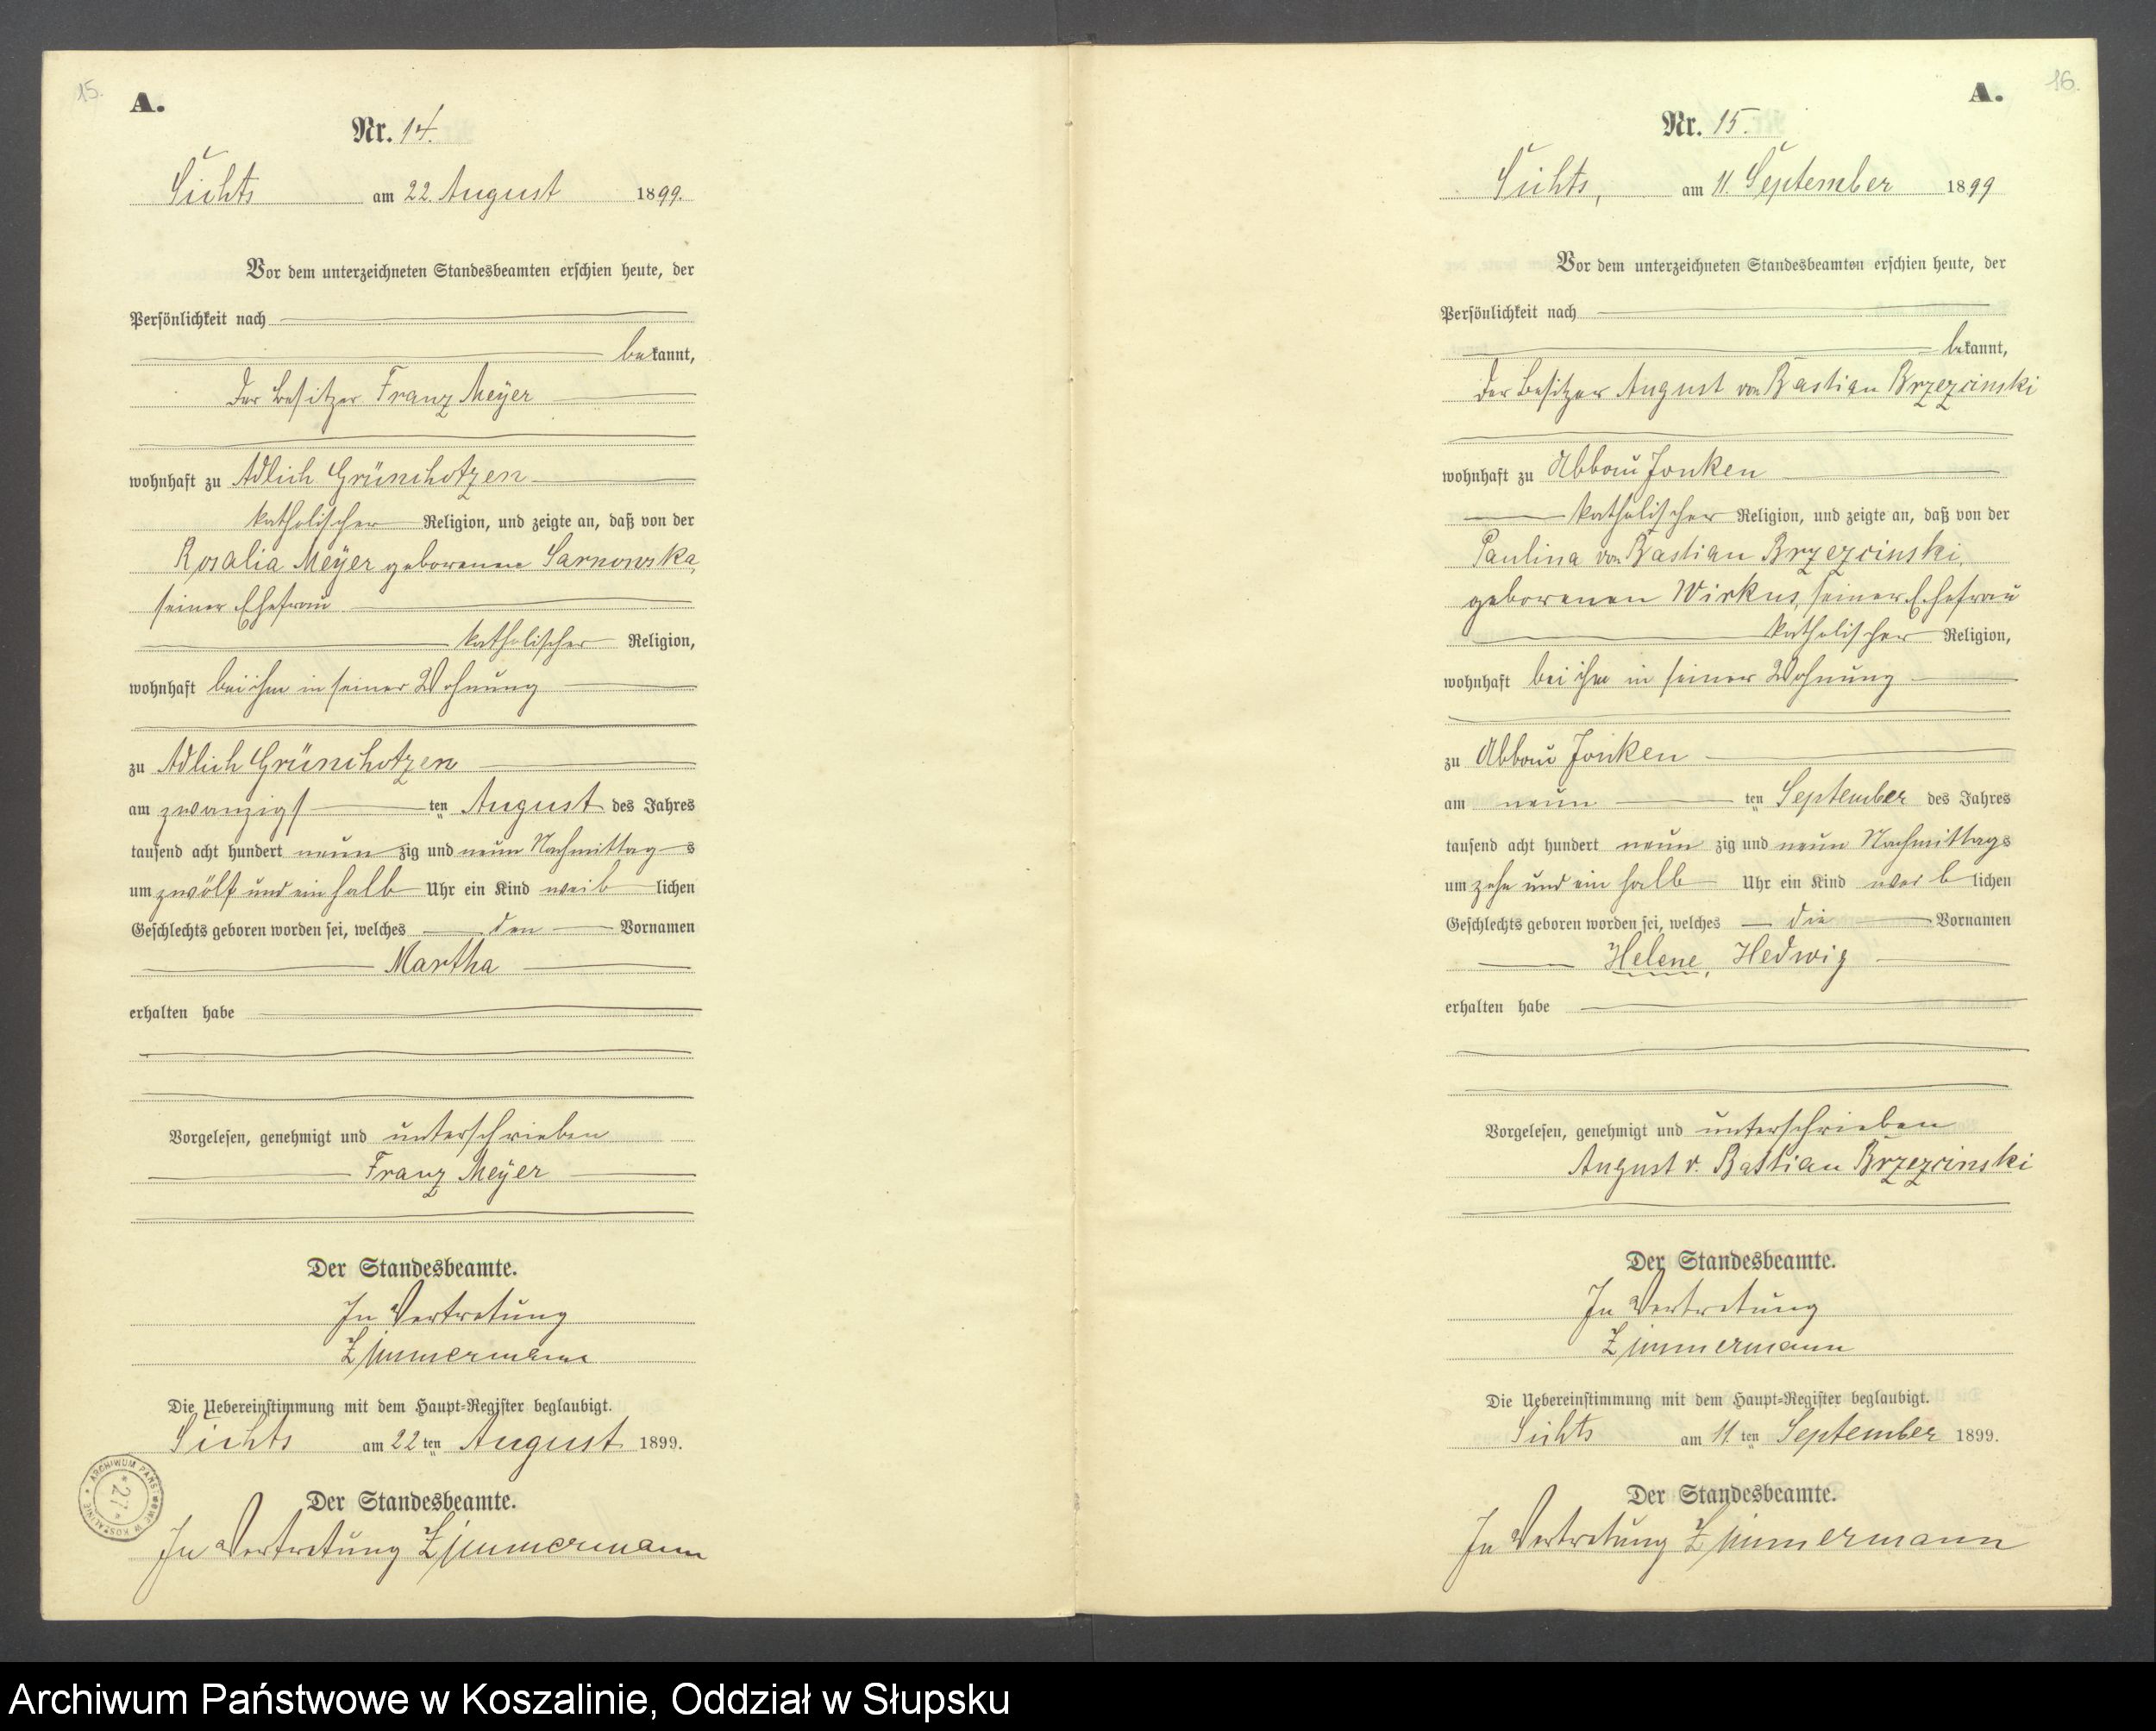 15.
A.
Nr. 14.
Sichts am 22. August 1899.
Vor dem unterzeichneten Standesbeamten erschien heute, der
Persönlichkeit nach
bekannt,
der Besitzer Franz Meÿer
wohnhaft zu Adlich Grünchotzen
katholischer Religion, und zeigte an, daß von der
Rosalia Meÿer geborenen Sarnowska,
seiner Ehefrau
katholischer Religion,
wohnhaft bei ihm in seiner Wohnung
zu Adlich Grünchotzen
am zwanzigsten August des Jahres
tausend acht hundert neunzig und neun Nachmittags
um zwölf und ein halb Uhr ein Kind weiblichen
Geschlechts geboren worden sei, welches den Vornamen
Martha
erhalten habe
Vorgelesen, genehmigt und unterschrieben
Franz Meÿer
Der Standesbeamte.
In Vertretung
Zimmermann
Die Uebereinstimmung mit dem Haupt-Register beglaubigt.
Sichts am 22ten August 1899.
Der Standesbeamte.
In Vertretung Zimmermann
ARCHIWUM PAŃSTWOWE W KOSZALINIE
* 27 *
16.
A.
Nr. 15.
Sichts, am 11. September 1899
Vor dem unterzeichneten Standesbeamten erschien heute, der
Persönlichkeit nach
bekannt,
der Besitzer August von Bastian Brzezcinski
wohnhaft zu Abbau Jonken
katholischer Religion, und zeigte an, daß von der
Paulina von Bastian Brzezcinski,
geborenen Wirkus, seiner Ehefrau
katholischer Religion,
wohnhaft bei ihm in seiner Wohnung
zu Abbau Jonken
am neunten September des Jahres
tausend acht hundert neunzig und neun Nachmittags
um zehn und ein halb Uhr ein Kind weiblichen
Geschlechts geboren worden sei, welches die Vornamen
Helene, Hedwig
erhalten habe
Vorgelesen, genehmigt und unterschrieben
August v. Bastian Brzezcinski
Der Standesbeamte.
In Vertretung
Zimmermann
Die Uebereinstimmung mit dem Haupt-Register beglaubigt.
Sichts am 11.ten September 1899.
Der Standesbeamte.
In Vertretung Zimmermann
Archiwum Państwowe w Koszalinie, Oddział w Słupsku